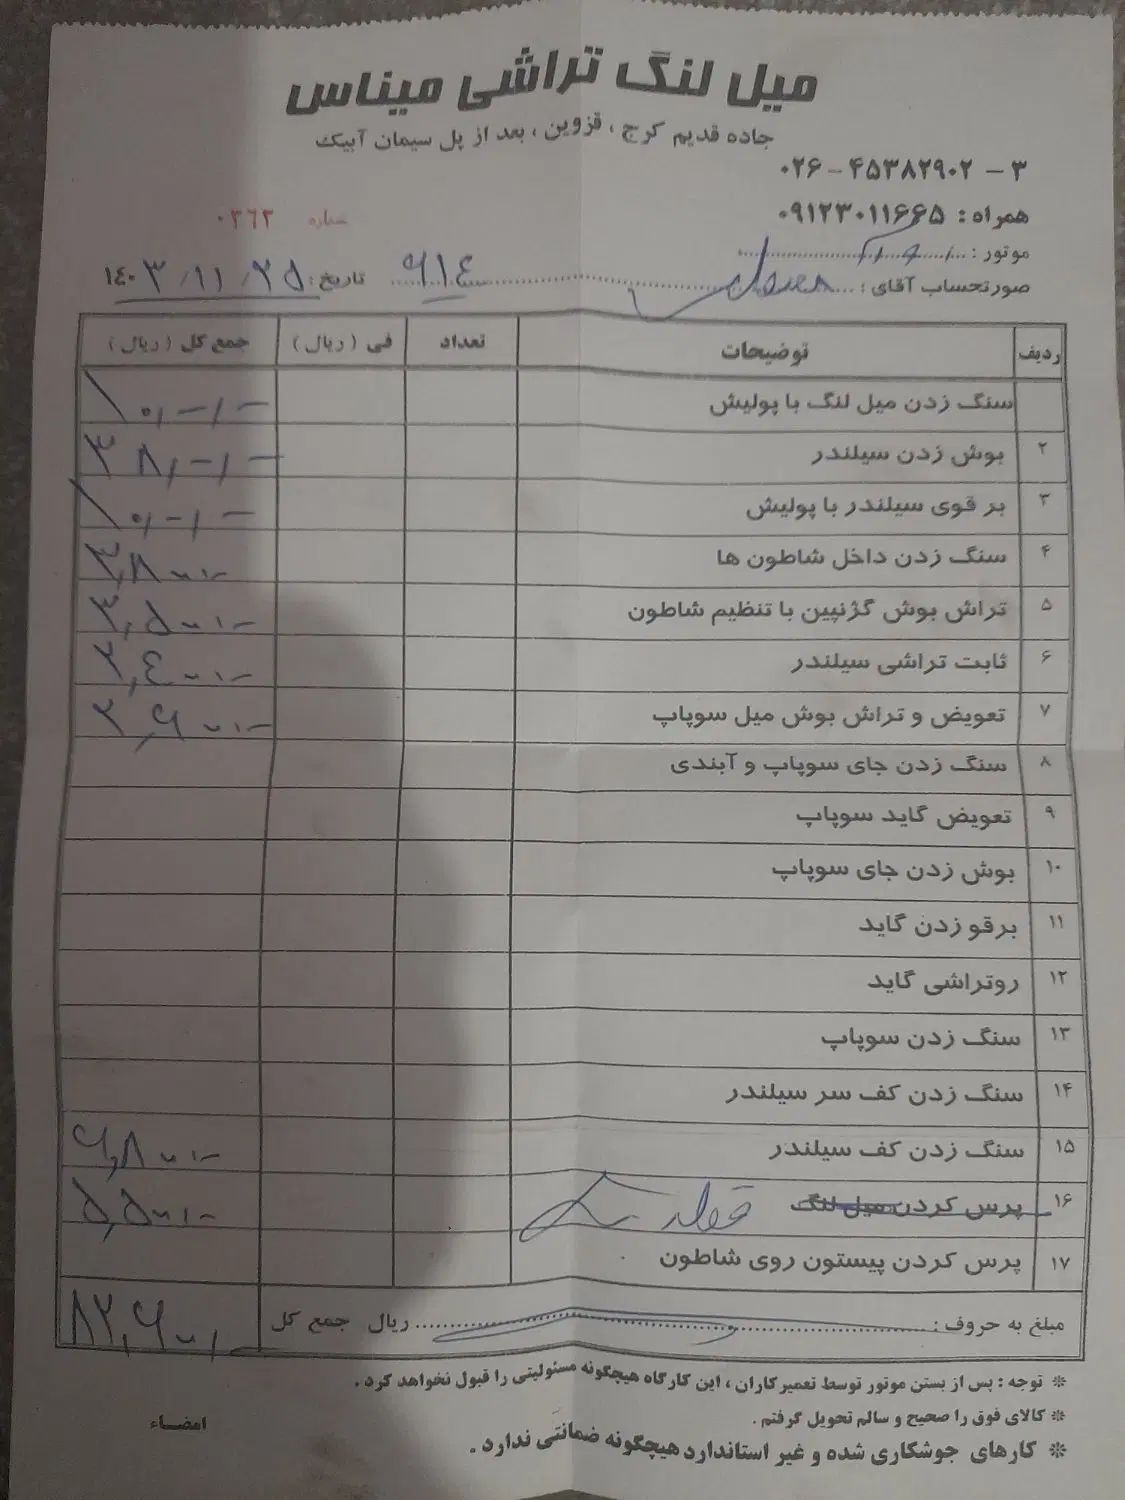 میل لنگ تراشی میناس
جاده قدیم کرج ، قزوین ، بعد از پل سیمان آبیک
۰۲۶ – ۴۵۳۸۲۹۰۲ – ۳
همراه : ۰۹۱۲۳۰۱۱۶۶۵
شماره ۰۲۶۲
موتور :
صورتحساب آقای : ۹۱۴ تاریخ : ۱۴۰۳/۱۱/۲۵
ردیف توضیحات تعداد فی (ریال) جمع کل (ریال)
سنگ زدن میل لنگ با پولیش ۱۰٫-/-
۲ بوش زدن سیلندر ۳۸٫-/-
۳ بر قوی سیلندر با پولیش ۱۰٫-/-
۴ سنگ زدن داخل شاطون ها
۵ تراش بوش گژنپین با تنظیم شاطون
۶ ثابت تراشی سیلندر
۷ تعویض و تراش بوش میل سوپاپ
۸ سنگ زدن جای سوپاپ و آبندی
۹ تعویض گاید سوپاپ
۱۰ بوش زدن جای سوپاپ
۱۱ برقو زدن گاید
۱۲ روتراشی گاید
۱۳ سنگ زدن سوپاپ
۱۴ سنگ زدن کف سر سیلندر
۱۵ سنگ زدن کف سیلندر ۶٫۸۰۰/-
۱۶ پرس کردن میل لنگ ۵٫۵۰۰/-
۱۷ پرس کردن پیستون روی شاطون
مبلغ به حروف : ریال جمع کل ۸۲٫۶۰۰/-
* توجه : پس از بستن موتور توسط تعمیرکاران ، این کارگاه هیچگونه مسئولیتی را قبول نخواهد کرد .
* کالای فوق را صحیح و سالم تحویل گرفتم .
امضاء
* کارهای جوشکاری شده و غیر استاندارد هیچگونه ضمانتی ندارد .